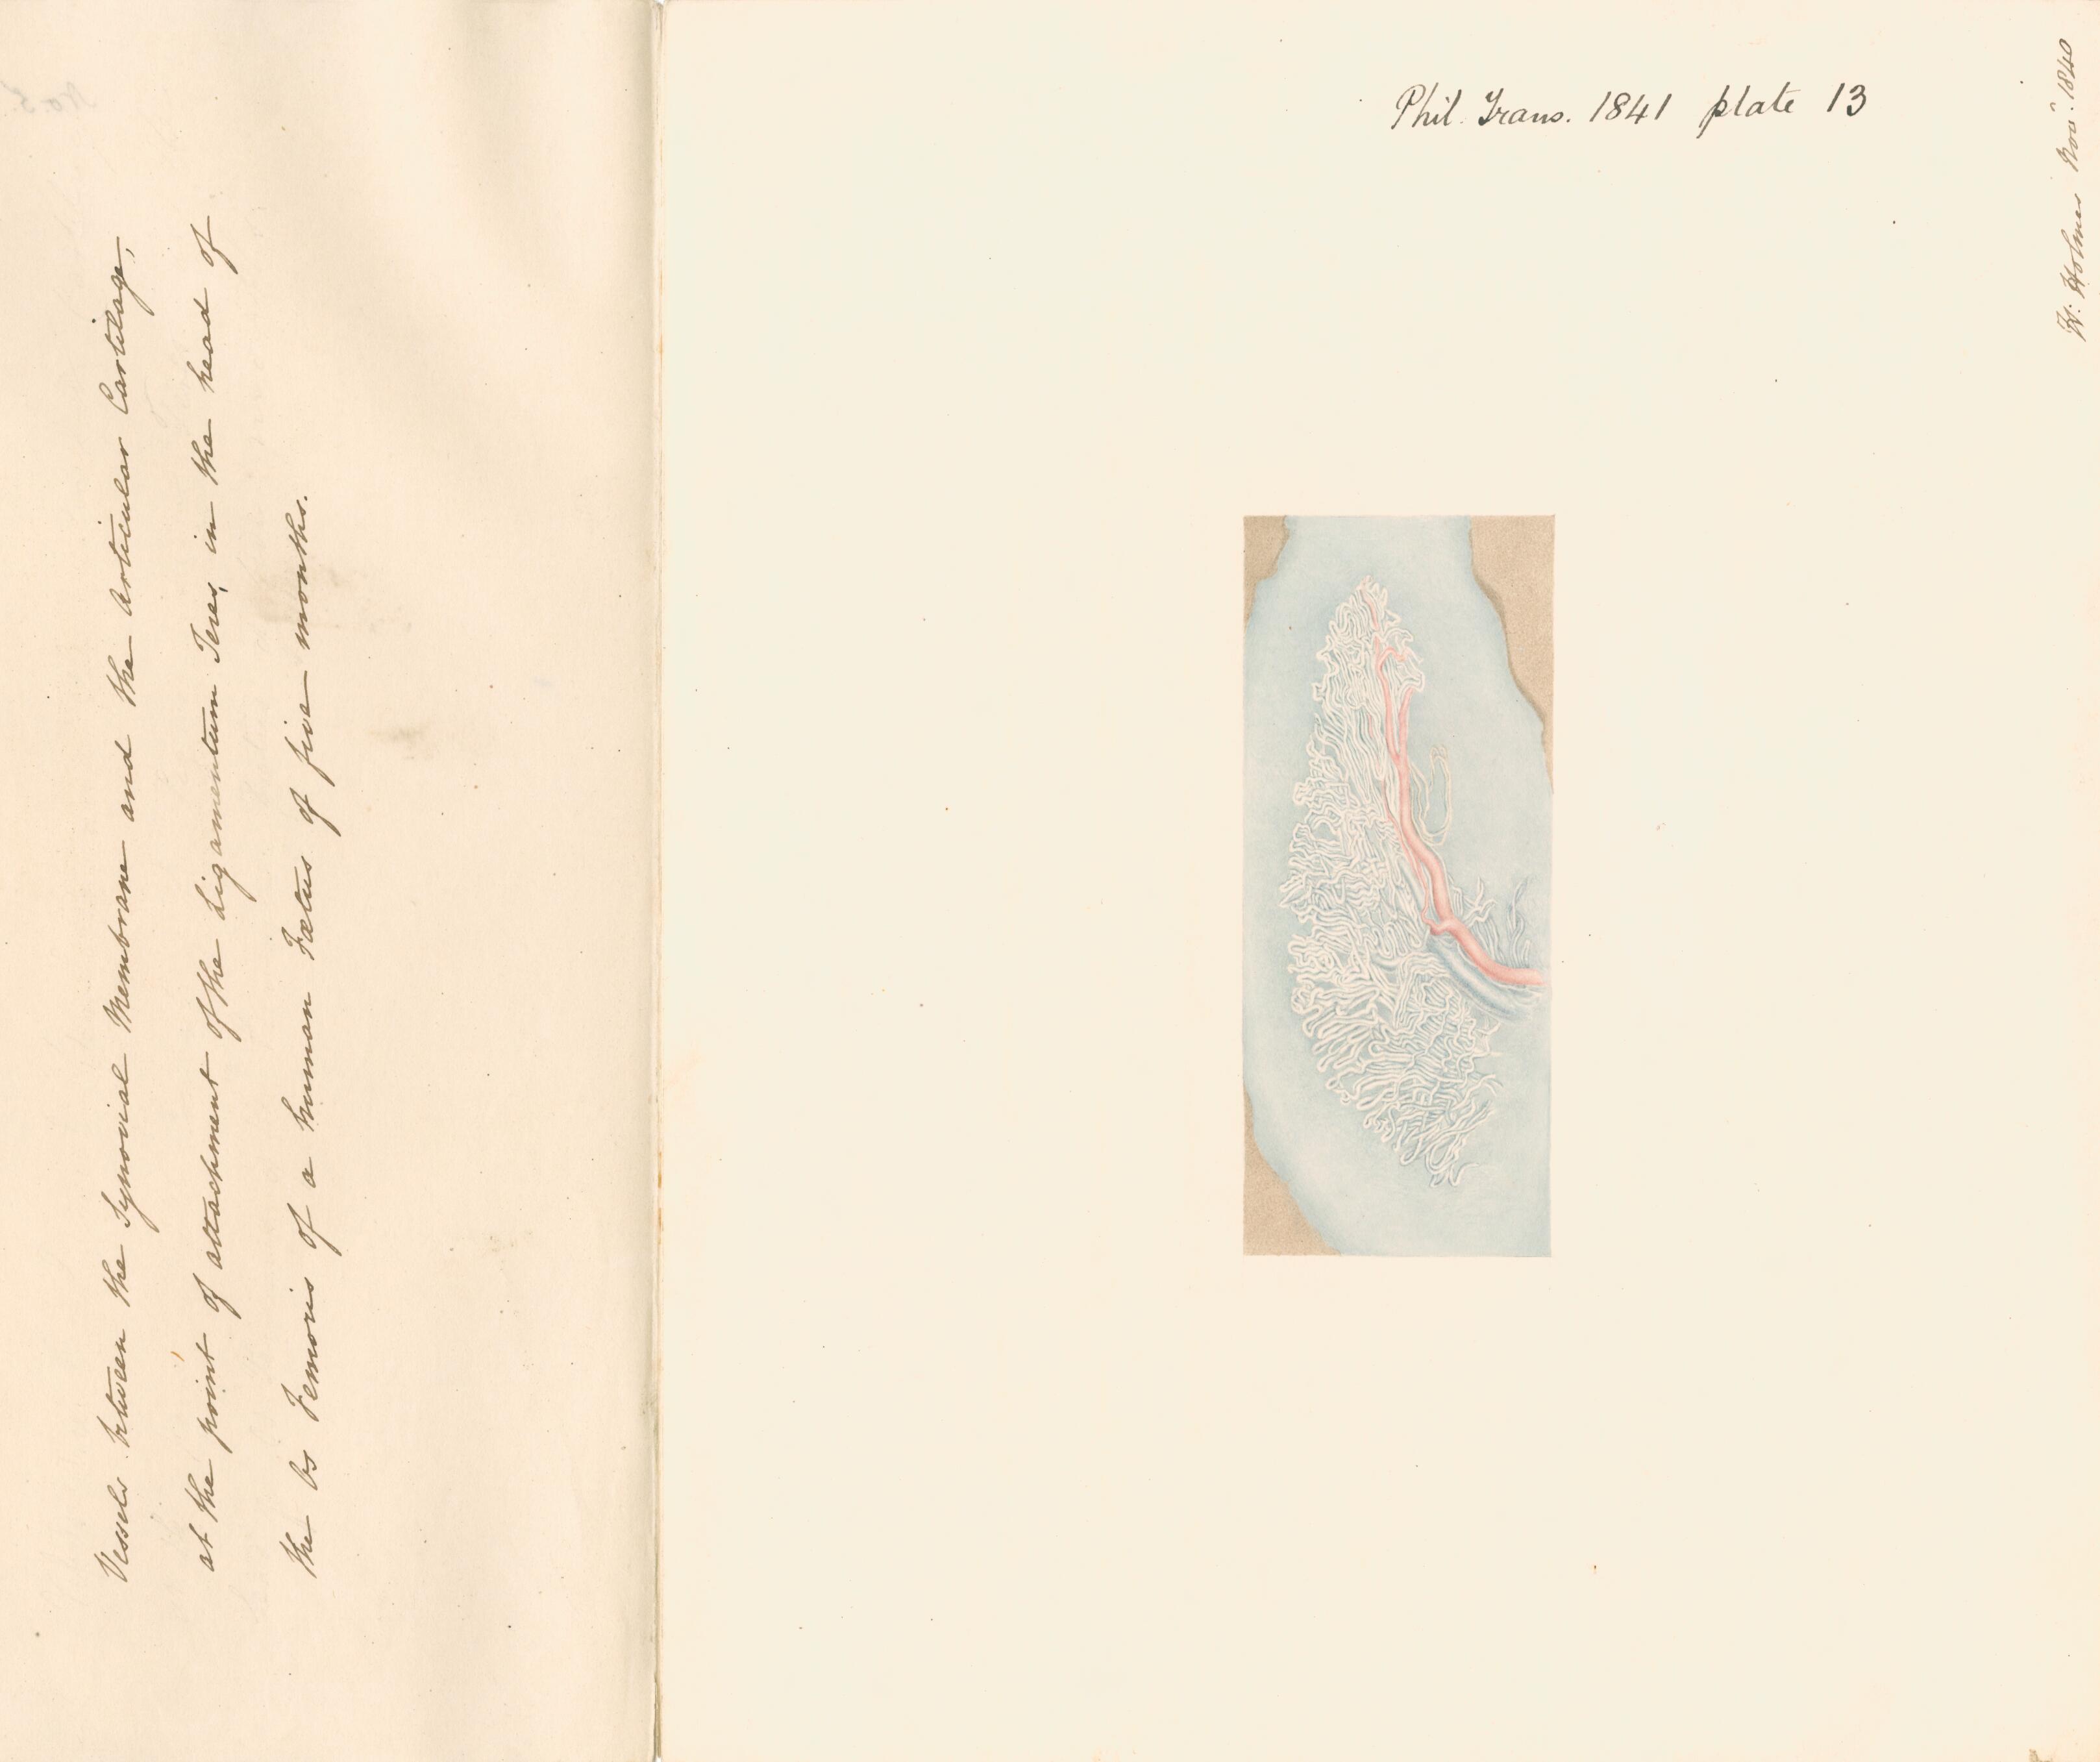 Vessels between the Synovial Membrane and the Articular Cartilage,
at the point of attachment of the Ligamentum Teres, in the head of
the Os Femoris of a human Fœtus of five months.
Phil. Trans. 1841 plate 13
W. Holmes Novr. 1840
No. 5.